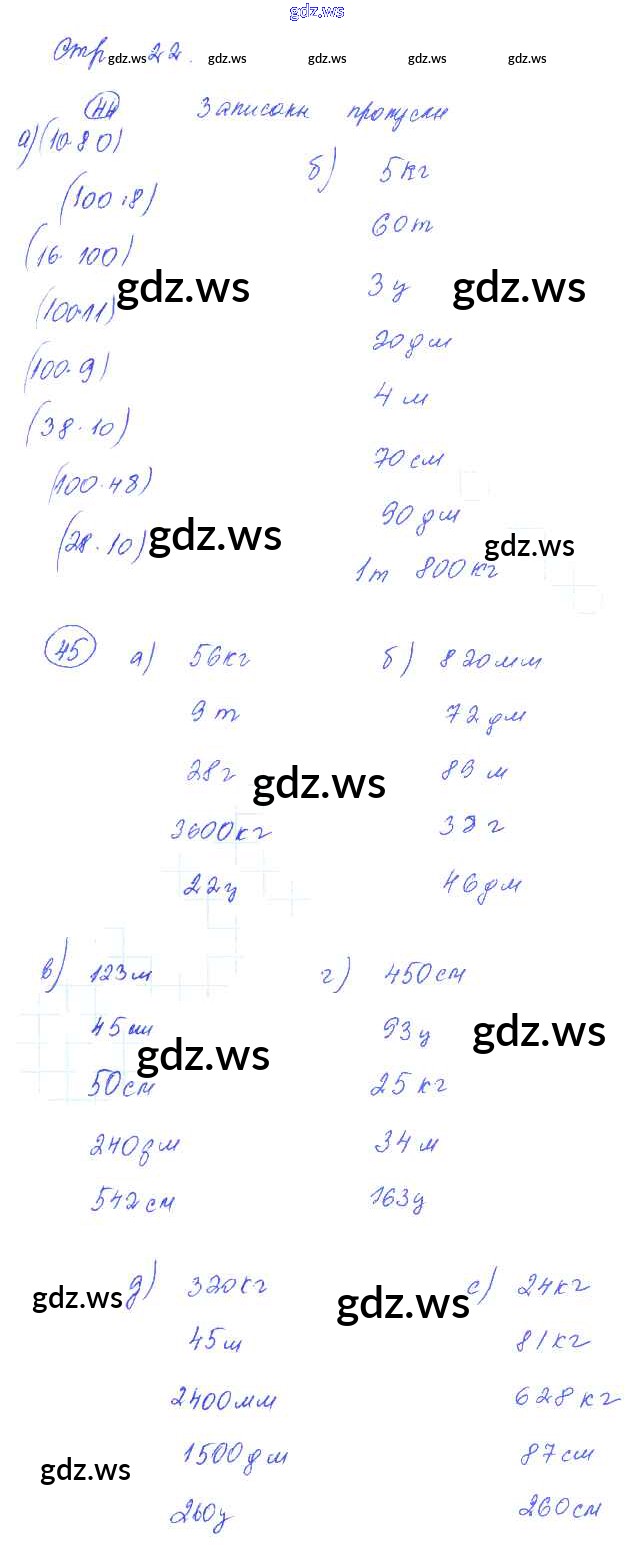 gdz.ws
Стр. 22.
gdz.ws gdz.ws gdz.ws gdz.ws gdz.ws
44 Записаны пропуски
а) (10·80)
(100·8)
(16·100)
(100·11)
(100·9)
(38·10)
(100·48)
(28·10)
б) 5кг
60т
3ц
20дм
4м
70см
90дм
1т 800кг
gdz.ws gdz.ws
gdz.ws gdz.ws
45 а) 56кг
9т
28г
3600кг
22ц
б) 820мм
72дм
89м
38г
46дм
gdz.ws
в) 123м
45мм
50см
240дм
542см
г) 450см
93ц
25кг
34м
163ц
gdz.ws gdz.ws
д) 320кг
45м
2400мм
1500дм
260ц
е) 24кг
81кг
628кг
87см
260см
gdz.ws gdz.ws
gdz.ws